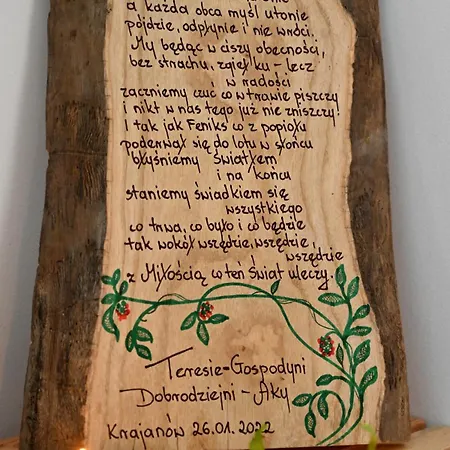 a każda obca myśl utonie
pójdzie, odpłynie i nie wróci.
My będąc w ciszy obecności,
bez strachu, zgiełku - lecz
w radości
zaczniemy czuć co w trawie piszczy
i nikt w nas tego już nie zniszczy!
I tak jak Feniks co z popiołu
poderwał się do lotu w słońcu
błyśniemy światłem
i na końcu
staniemy świadkiem się
wszystkiego
co trwa, co było i co będzie
tak wokół wszędzie, wszędzie,
wszędzie
z Miłością co ten świat uleczy.
Teresie-Gospodyni
Dobrodziejni - Aky
Krajanów 26.01.2022